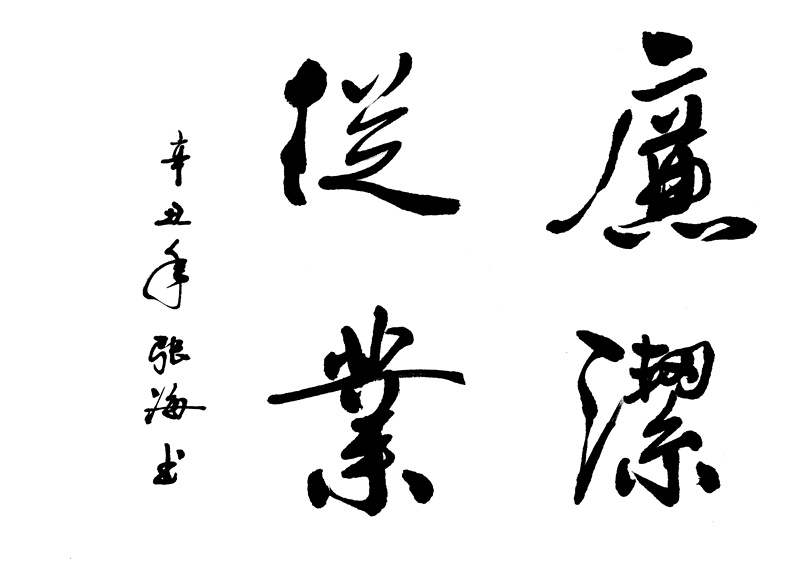 廉潔
從業
辛丑年張海书